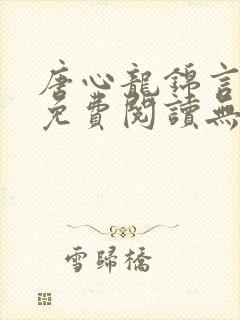 唐心龍錦言
免費閱讀無
雪歸橋